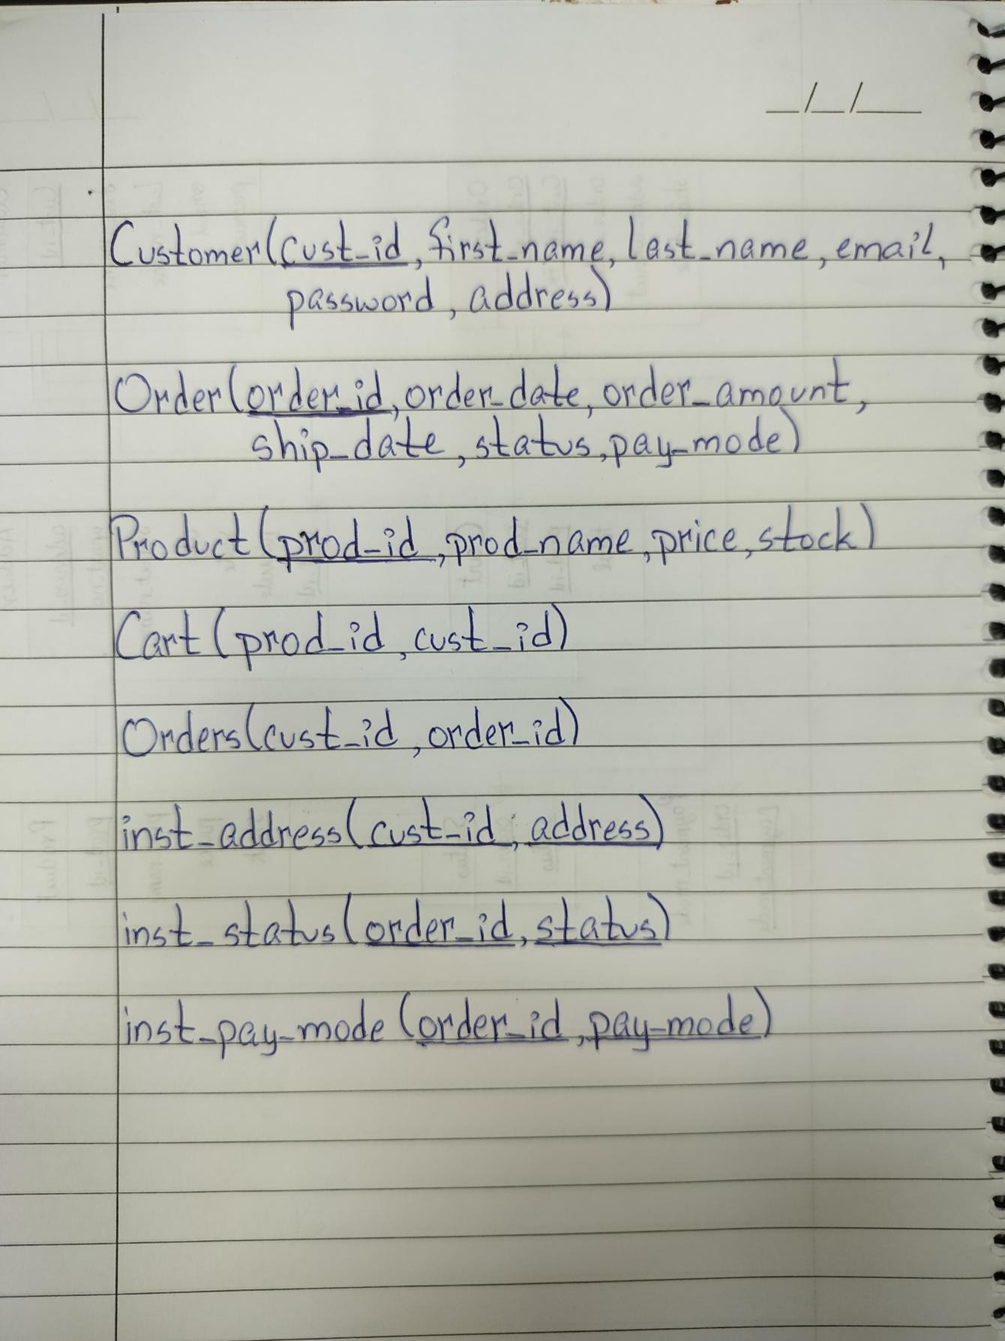 _/_/_
Customer(cust_id, first_name, last_name, email,
password, address)
Order(order_id, order_date, order_amount,
ship_date, status, pay_mode)
Product(prod_id, prod_name, price, stock)
Cart(prod_id, cust_id)
Orders(cust_id, order_id)
inst_address(cust_id, address)
inst_status(order_id, status)
inst_pay_mode(order_id, pay_mode)